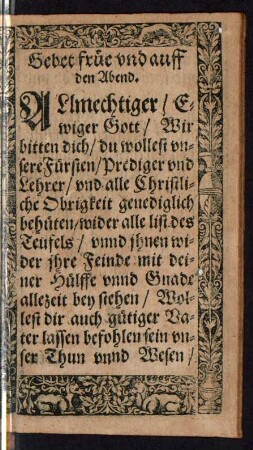 Gebet früe vnd auff
den Abend.
ALlmechtiger / E-
wiger Gott / Wir
bitten dich / du wollest vn-
sere Fürsten / Prediger vnd
Lehrer / vnd alle Christli-
che Obrigkeit genediglich
behüten / wider alle list des
Teufels / vnnd jhnen wi-
der jhre Feinde mit dei-
ner Hülffe vnnd Gnade
allezeit bey stehen / Wol-
lest dir auch gütiger Va-
ter lassen befohlen sein vn-
ser Thun vnnd Wesen /